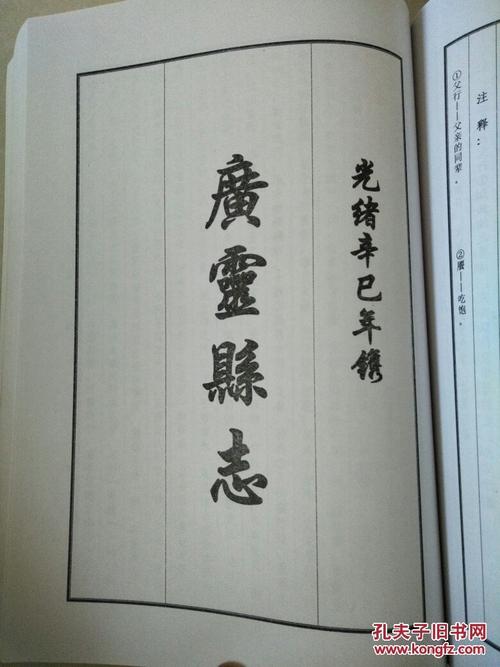 注释：
①父行——父亲的同辈。
②餍——吃饱。
光緒辛巳年鐫
廣靈縣志
孔夫子旧书网
www.kongfz.com